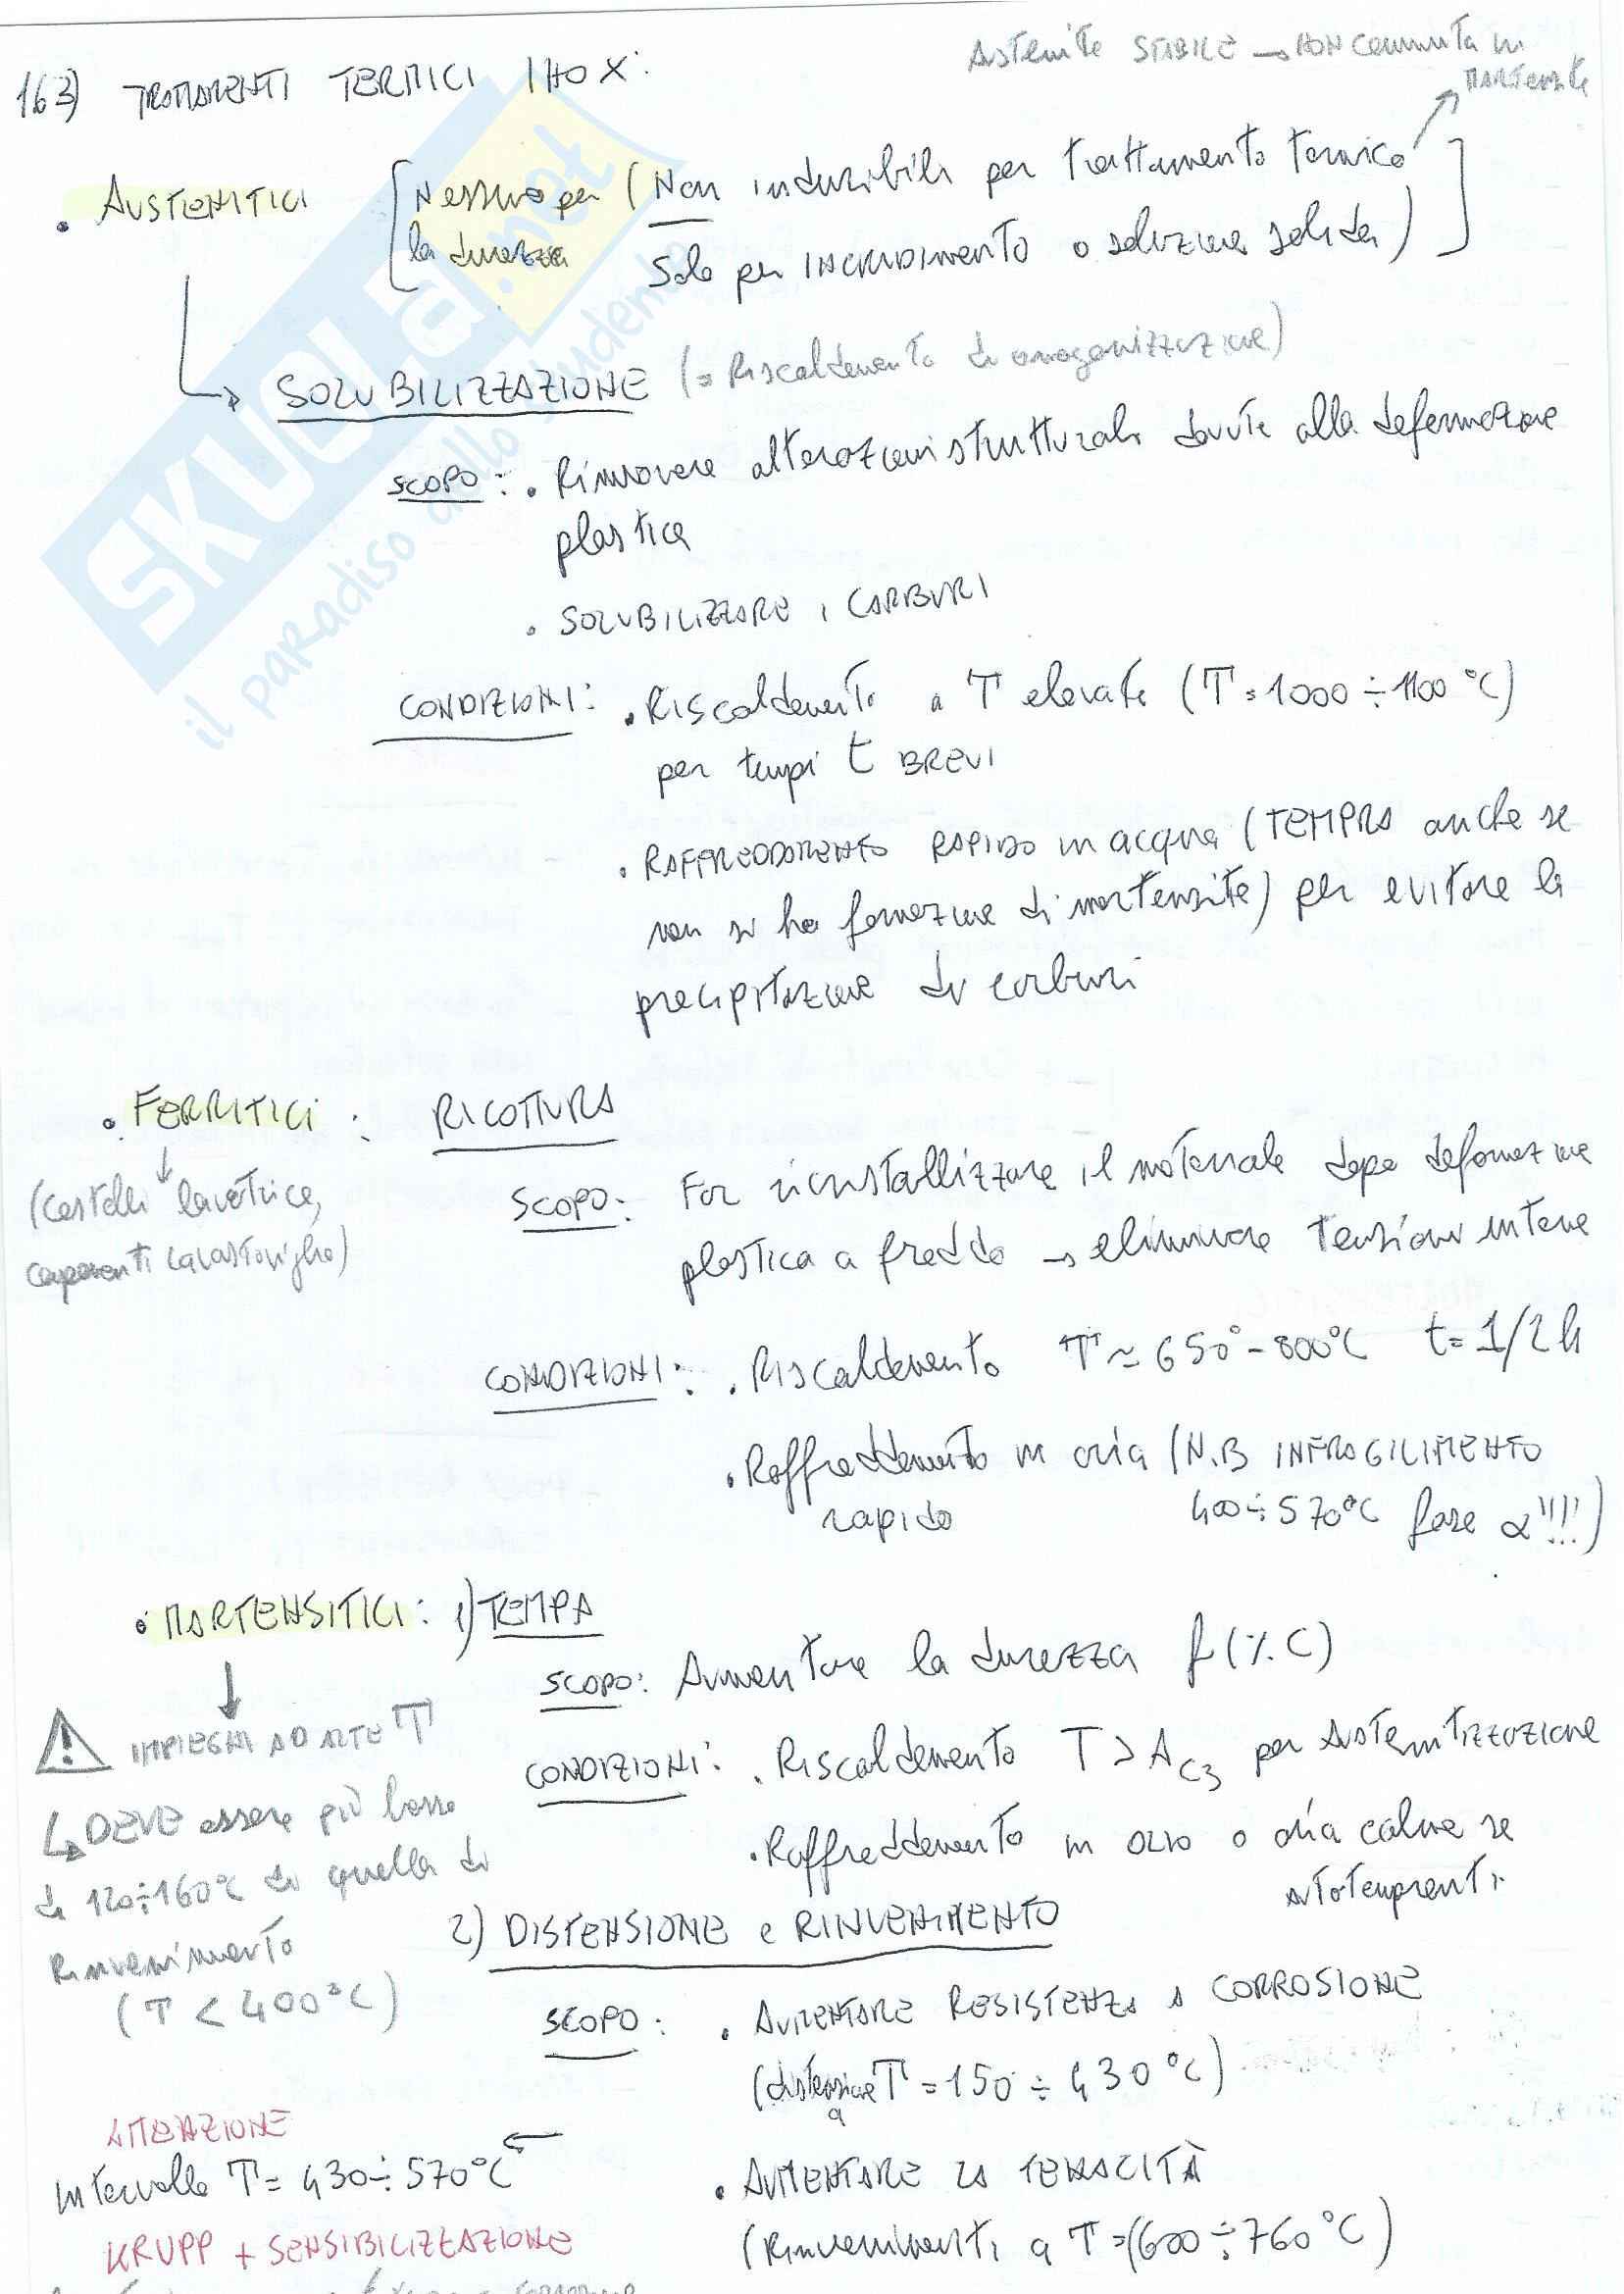 Austenite STABILE → NON commuta in
martensite
163) TRATTAMENTI TERMICI INOX:
• AUSTENITICI [Nessuno per (Non induribili per trattamento termico
la durezza Solo per INCRUDIMENTO o soluzione solida)]
→ SOLUBILIZZAZIONE (= Riscaldamento di omogenizzazione)
SCOPO: • Rimuovere alterazioni strutturali dovute alla deformazione
plastica
• SOLUBILIZZARE i CARBURI
CONDIZIONI: • Riscaldamento a T elevate (T = 1000 ÷ 1100 °C)
per tempi t BREVI
• RAFFREDDAMENTO RAPIDO in acqua (TEMPRA anche se
non si ha formazione di martensite) per evitare la
precipitazione di carburi
• FERRITICI: RICOTTURA
↓
(cestelli lavatrice,
componenti lavastoviglie)
SCOPO: Far ricristallizzare il materiale dopo deformazione
plastica a freddo → eliminare tensioni interne
CONDIZIONI: • Riscaldamento T ≃ 650° - 800°C t = 1/2 h
• Raffreddamento in aria (N.B INFRAGILIMENTO
rapido 400 ÷ 570°C fase α'!!!)
• MARTENSITICI: 1) TEMPA
SCOPO: Aumentare la durezza f(%C)
CONDIZIONI: • Riscaldamento T > AC3 per austenitizzazione
• Raffreddamento in olio o aria calma se
autotempranti
↓
! IMPIEGHI AD ALTE T
↳ DEVE essere più bassa
di 120÷160°C di quella di
Rinvenimento
(T < 400°C)
2) DISTENSIONE e RINVENIMENTO
SCOPO: • AUMENTARE RESISTENZA a CORROSIONE
(distensione a T = 150 ÷ 430 °C)
• AUMENTARE la TENACITÀ
(Rinvenimenti a T = (600 ÷ 760 °C)
ATTENZIONE
Intervallo T = 430 ÷ 570°C ←
KRUPP + SENSIBILIZZAZIONE
SKUOLA.net
il paradiso dello studente